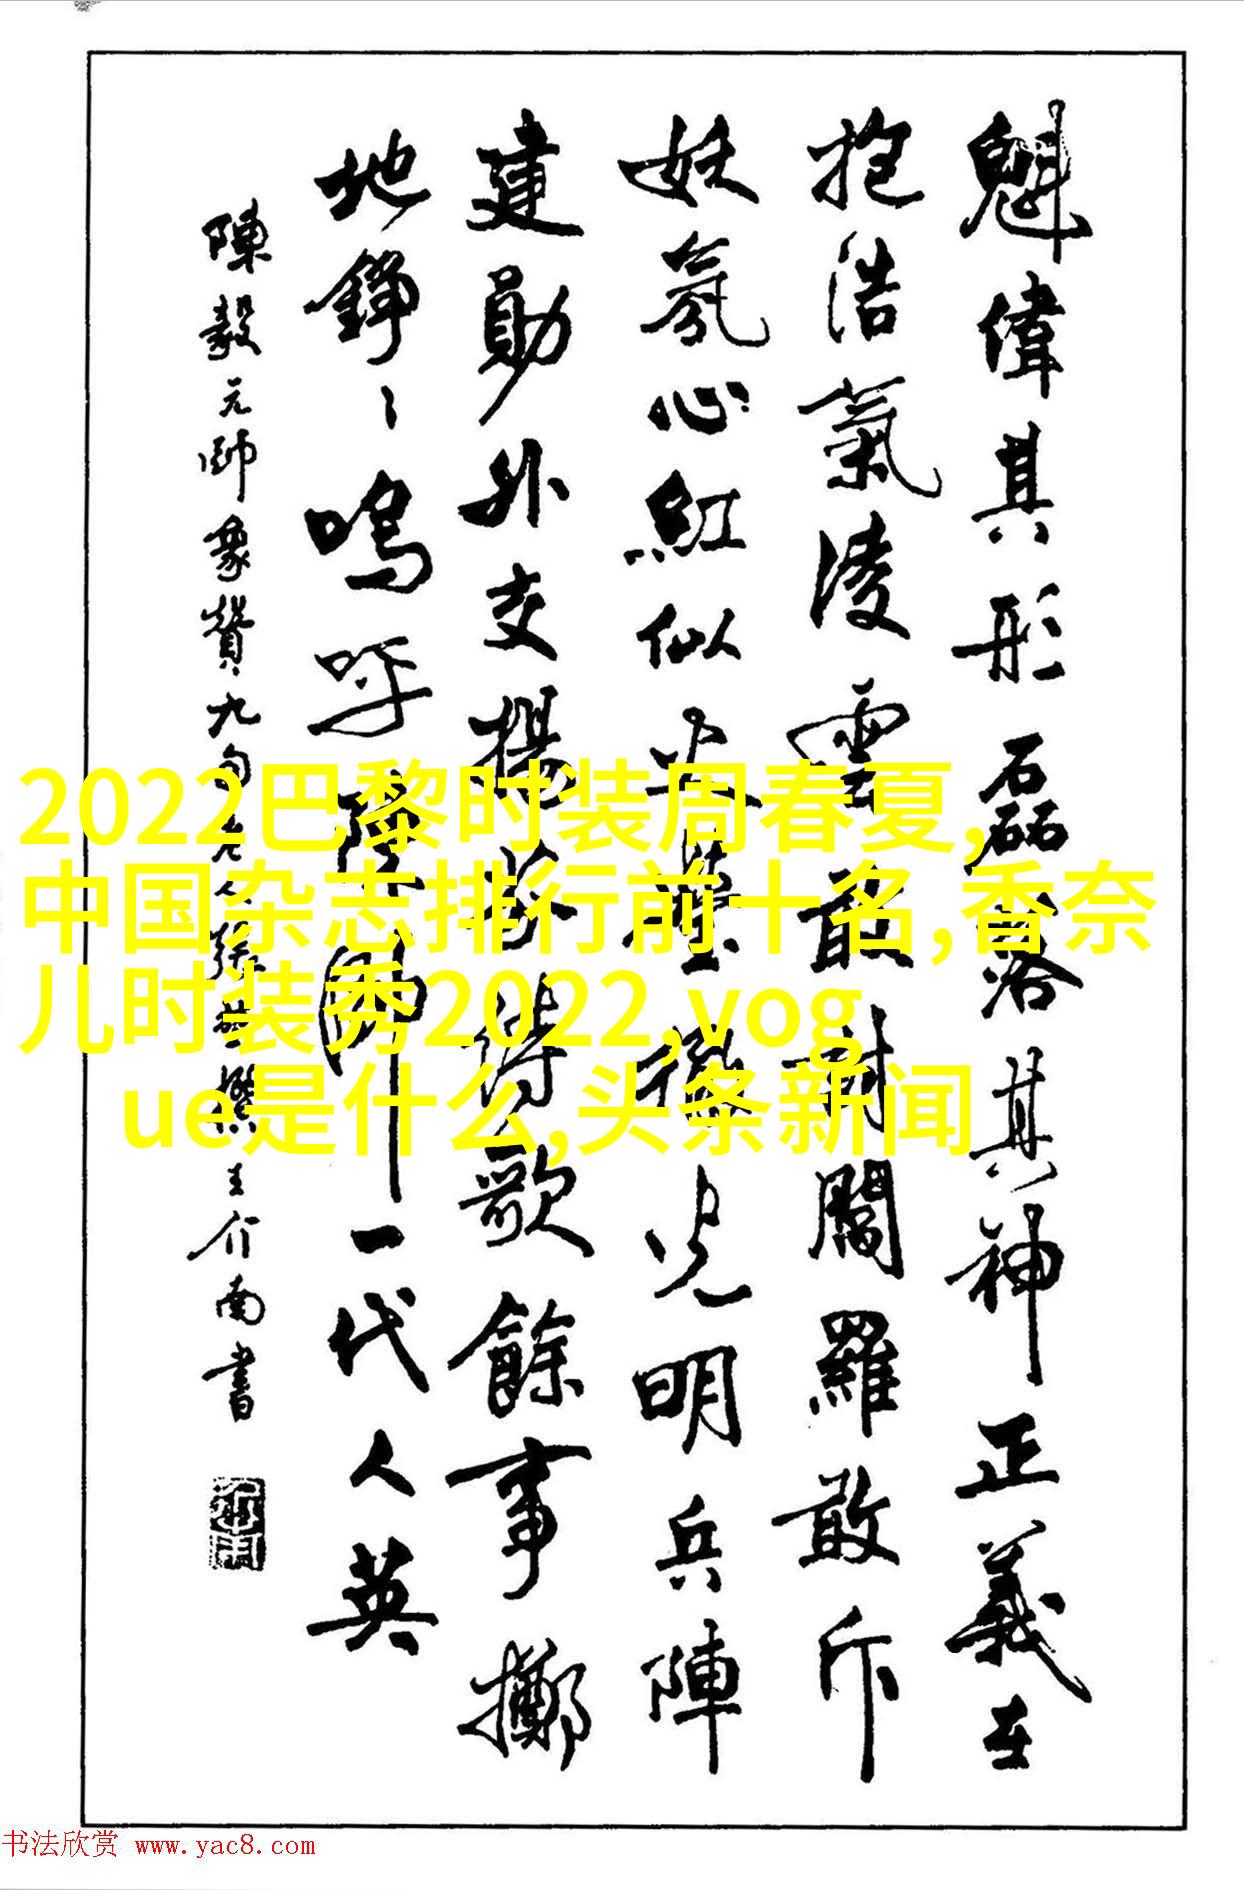 魁偉其形磊落其神正義在
抱浩氣淩雲敢討閻羅敢斥
妖氛心紅似火襟懷光明兵陣
建勛外交揚譽詩歌餘事擲
地錚々嗚呼陳帥一代人英
陳毅元帥象贊九旬老人張撰王介南書
2022巴黎时装周春夏,
中国杂志排行前十名,香奈
儿时装秀2022,vog
ue是什么,头条新闻
书法欣赏 www.yac8.com